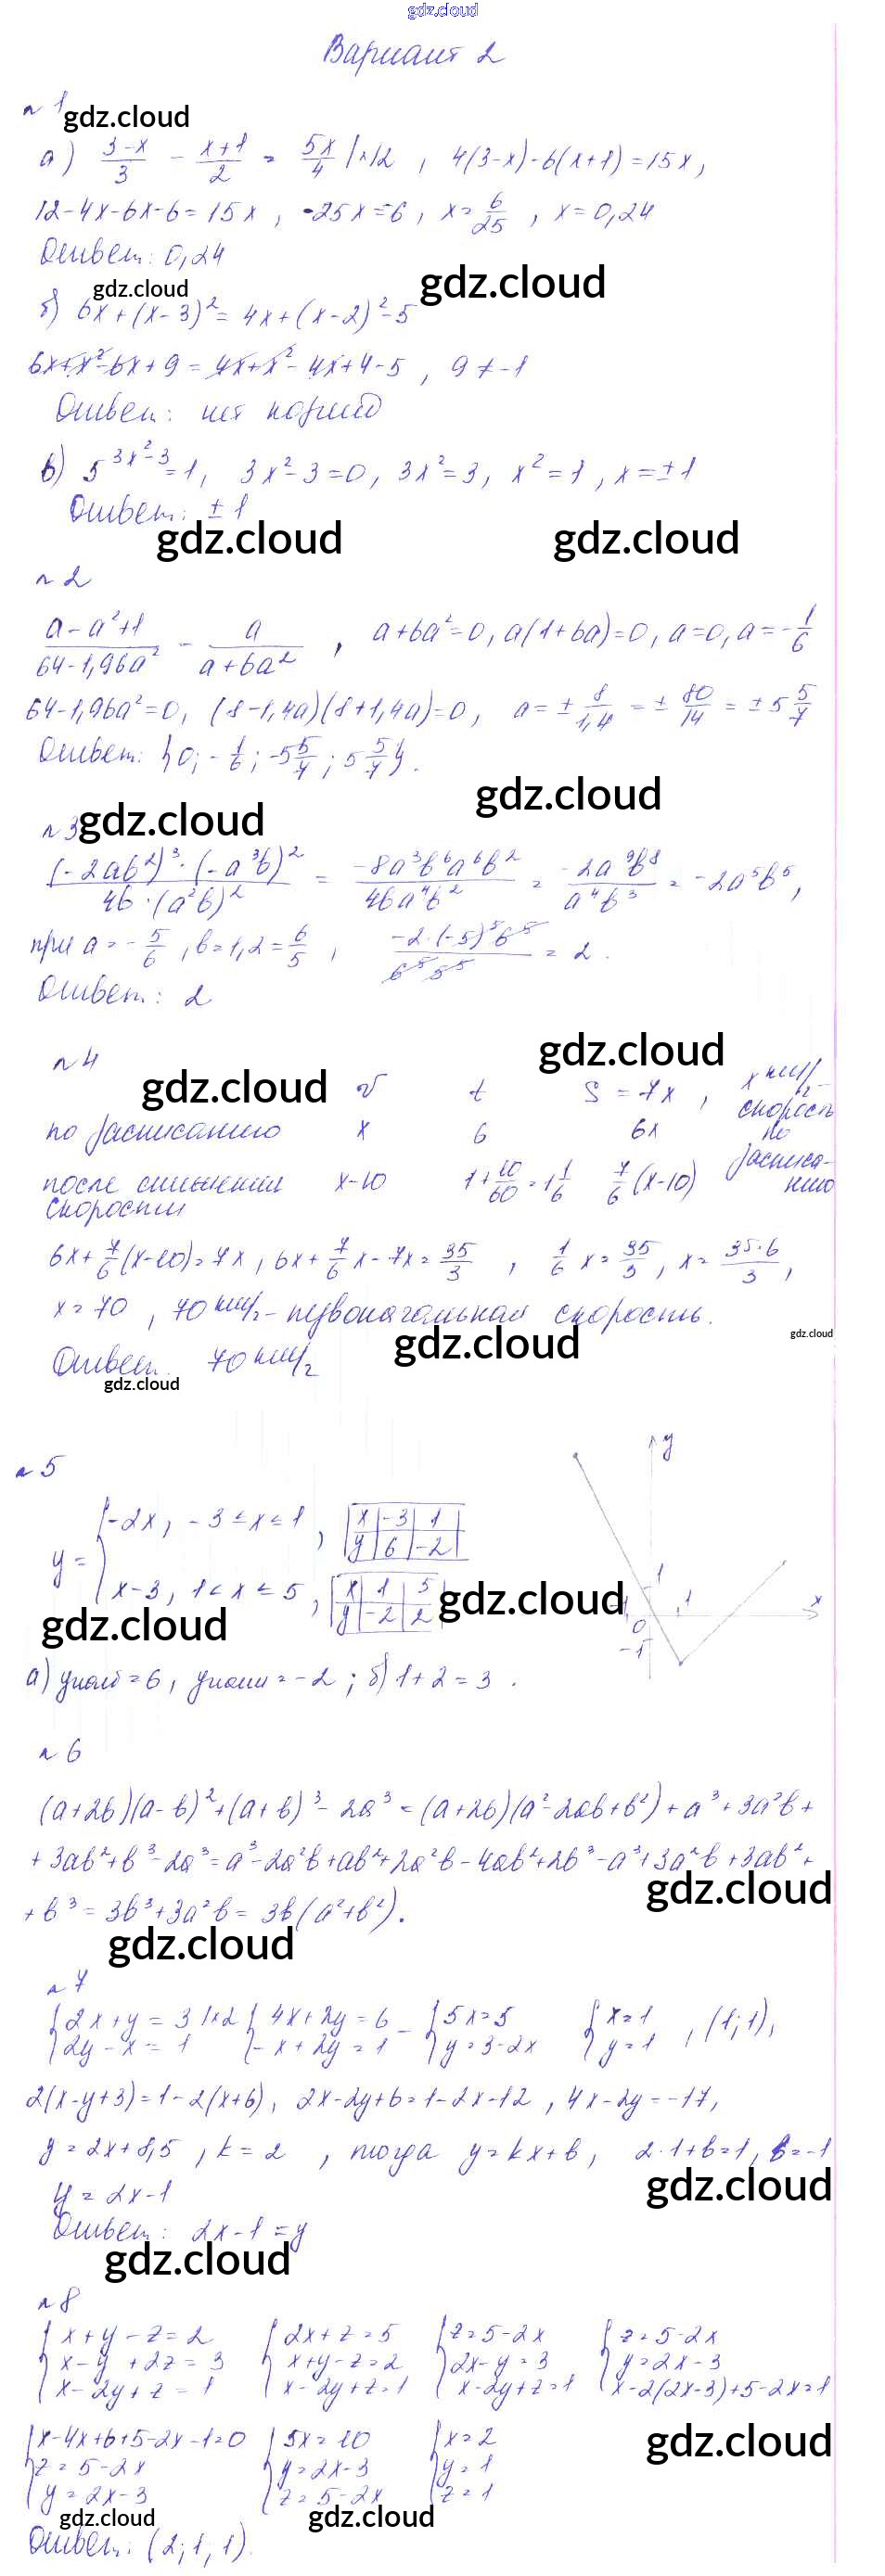 gdz.cloud
Вариант 2
n 1
gdz.cloud
а) (3-x)/3 - (x+1)/2 = 5x/4 |×12 , 4(3-x)-6(x+1)=15x,
12-4x-6x-6=15x , -25x=-6 , x=6/25 , x=0,24
Ответ: 0,24
gdz.cloud
gdz.cloud
б) 6x+(x-3)²=4x+(x-2)²-5
6x+x²-6x+9=4x+x²-4x+4-5 , 9≠-1
Ответ: нет корней
в) 5^(3x²-3)=1, 3x²-3=0, 3x²=3, x²=1, x=±1
Ответ: ±1
gdz.cloud
gdz.cloud
n 2
(a-a²+1)/(64-1,96a²) - a/(a+6a²) , a+6a²=0, a(1+6a)=0, a=0, a=-1/6
64-1,96a²=0, (8-1,4a)(8+1,4a)=0, a=±8/1,4=±80/14=±5 5/7
Ответ: {0; -1/6; -5 5/7; 5 5/7}.
gdz.cloud
n 3
gdz.cloud
((-2ab²)³·(-a³b)²)/(4b·(a²b)²) = (-8a³b⁶a⁶b²)/(4ba⁴b²) = (-2a⁹b⁸)/(a⁴b³) = -2a⁵b⁵,
при a=-5/6 , b=1,2=6/5 , (-2·(-5)⁵6⁵)/(6⁵5⁵) = 2 .
Ответ: 2
gdz.cloud
n 4
gdz.cloud
v t S = 7x , x км/ч - скорость по расписанию
по расписанию x 6 6x
после снижения скорости x-10 1+10/60=1 1/6 7/6(x-10)
6x+7/6(x-10)=7x , 6x+7/6x-7x=35/3 , 1/6x=35/3 , x=35·6/3 ,
x=70 , 70 км/ч - первоначальная скорость.
gdz.cloud
gdz.cloud
Ответ. 70 км/ч
gdz.cloud
n 5
y= { -2x, -3≤x≤1 , x -3 1 y 6 -2
x-3, 1<x≤5 , x 1 5 y -2 2
y 1 -1 0 1 x -1
gdz.cloud
gdz.cloud
а) yнаиб=6, yнаим=-2 ; б) 1+2=3 .
n 6
(a+2b)(a-b)²+(a+b)³-2a³=(a+2b)(a²-2ab+b²)+a³+3a²b+
+3ab²+b³-2a³=a³-2a²b+ab²+2a²b-4ab²+2b³-a³+3a²b+3ab²+
gdz.cloud
+b³=3b³+3a²b=3b(a²+b²).
gdz.cloud
n 7
{2x+y=3 |×2 {4x+2y=6 - {5x=5 {x=1
2y-x=1 -x+2y=1 y=3-2x y=1 , (1;1),
2(x-y+3)=1-2(x+6), 2x-2y+6=1-2x-12 , 4x-2y=-17,
y=2x+8,5 , k=2 , тогда y=kx+b, 2·1+b=1, b=-1
y=2x-1
gdz.cloud
Ответ: 2x-1=y
gdz.cloud
n 8
{x+y-z=2 {2x+z=5 {z=5-2x {z=5-2x
x-y+2z=3 x+y-z=2 2x-y=3 y=2x-3
x-2y+z=1 x-2y+z=1 x-2y+z=1 x-2(2x-3)+5-2x=1
{x-4x+6+5-2x-1=0 {5x=10 {x=2
z=5-2x y=2x-3 y=1
y=2x-3 z=5-2x z=1
gdz.cloud
gdz.cloud
gdz.cloud
Ответ: (2;1,1).